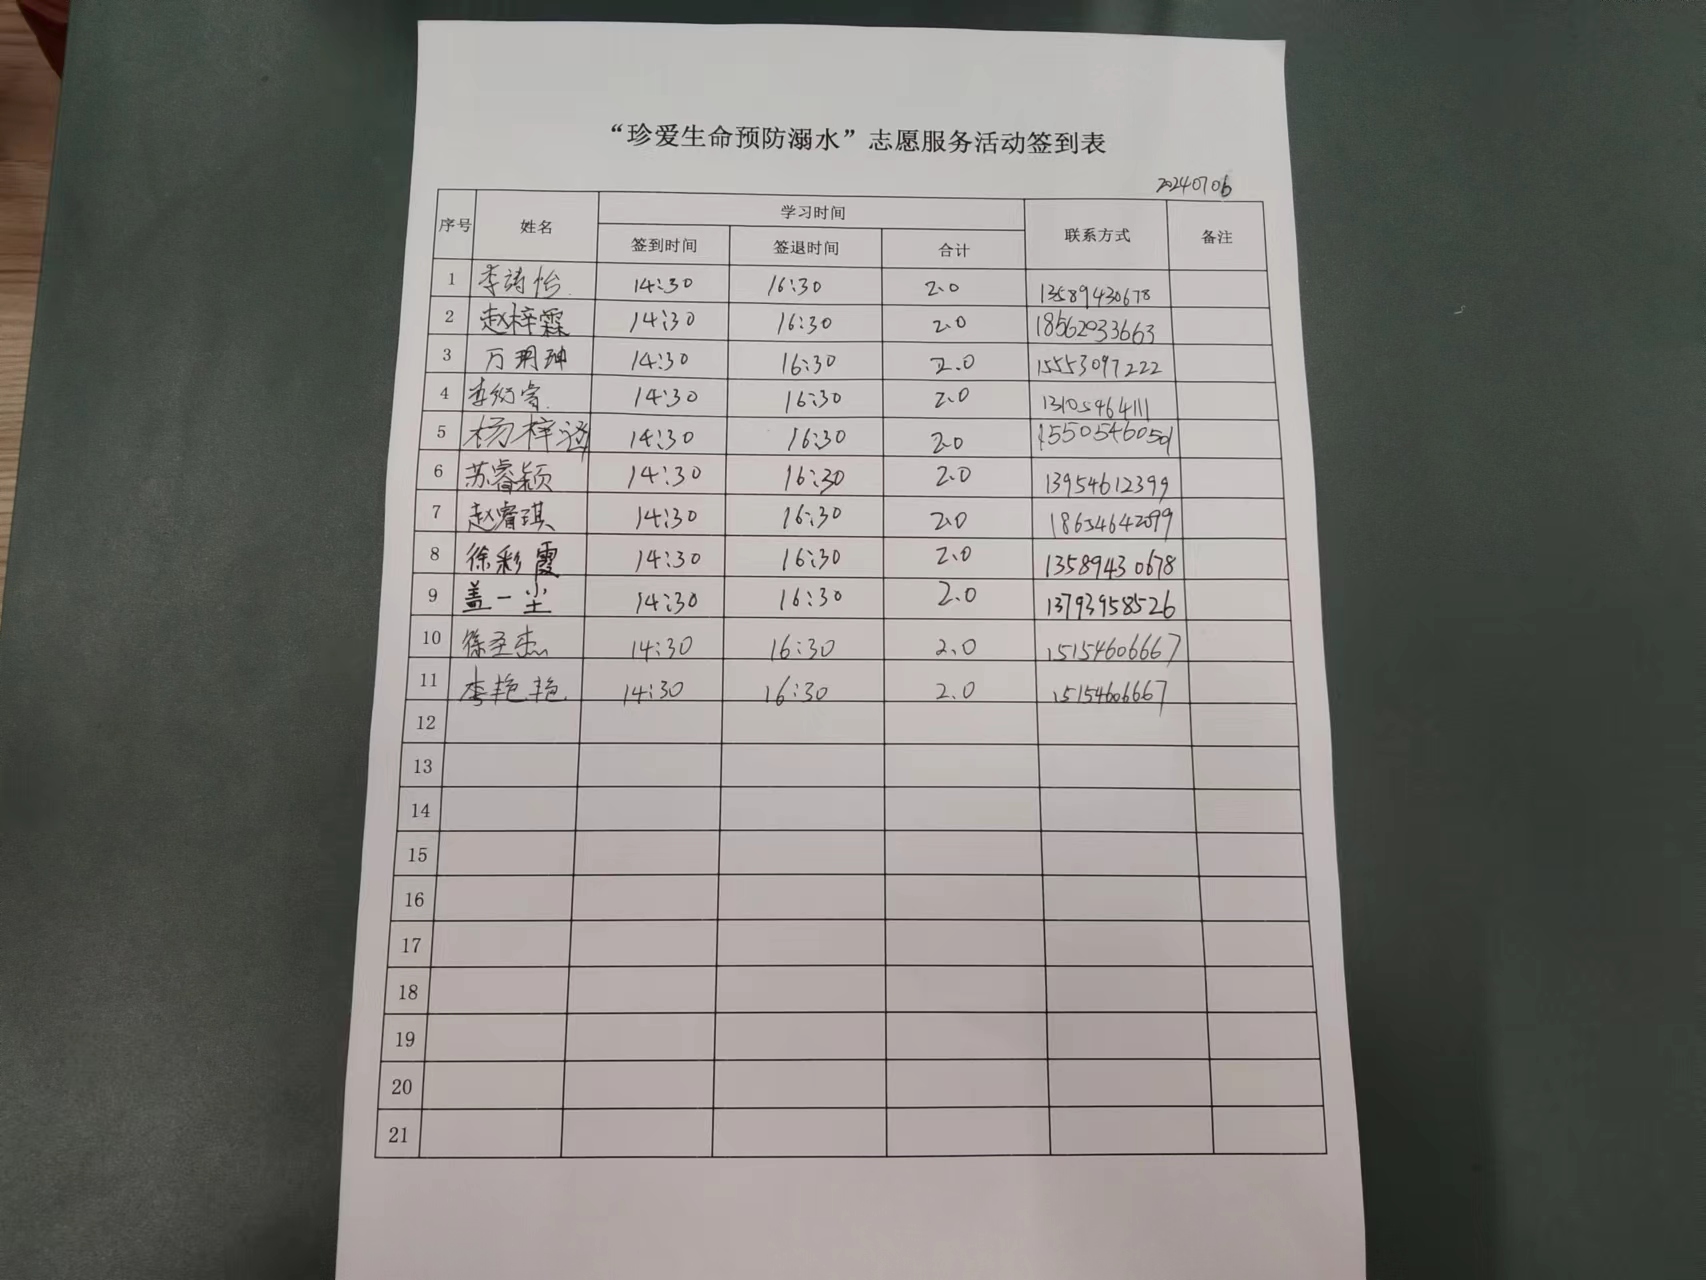 “珍爱生命预防溺水”志愿服务活动签到表
20240706
序号 姓名 学习时间 联系方式 备注
签到时间 签退时间 合计
1 李诗怡 14:30 16:30 2.0 13589430678
2 赵梓霖 14:30 16:30 2.0 18562033663
3 万玥珅 14:30 16:30 2.0 15553097222
4 李 睿 14:30 16:30 2.0 13105464111
5 杨梓 14:30 16:30 2.0 15505460501
6 苏睿颖 14:30 16:30 2.0 13954612399
7 赵睿琪 14:30 16:30 2.0 18654642099
8 徐彩霞 14:30 16:30 2.0 13589430678
9 盖一尘 14:30 16:30 2.0 13793958526
10 徐圣杰 14:30 16:30 2.0 15154606667
11 李艳艳 14:30 16:30 2.0 15154606667
12
13
14
15
16
17
18
19
20
21